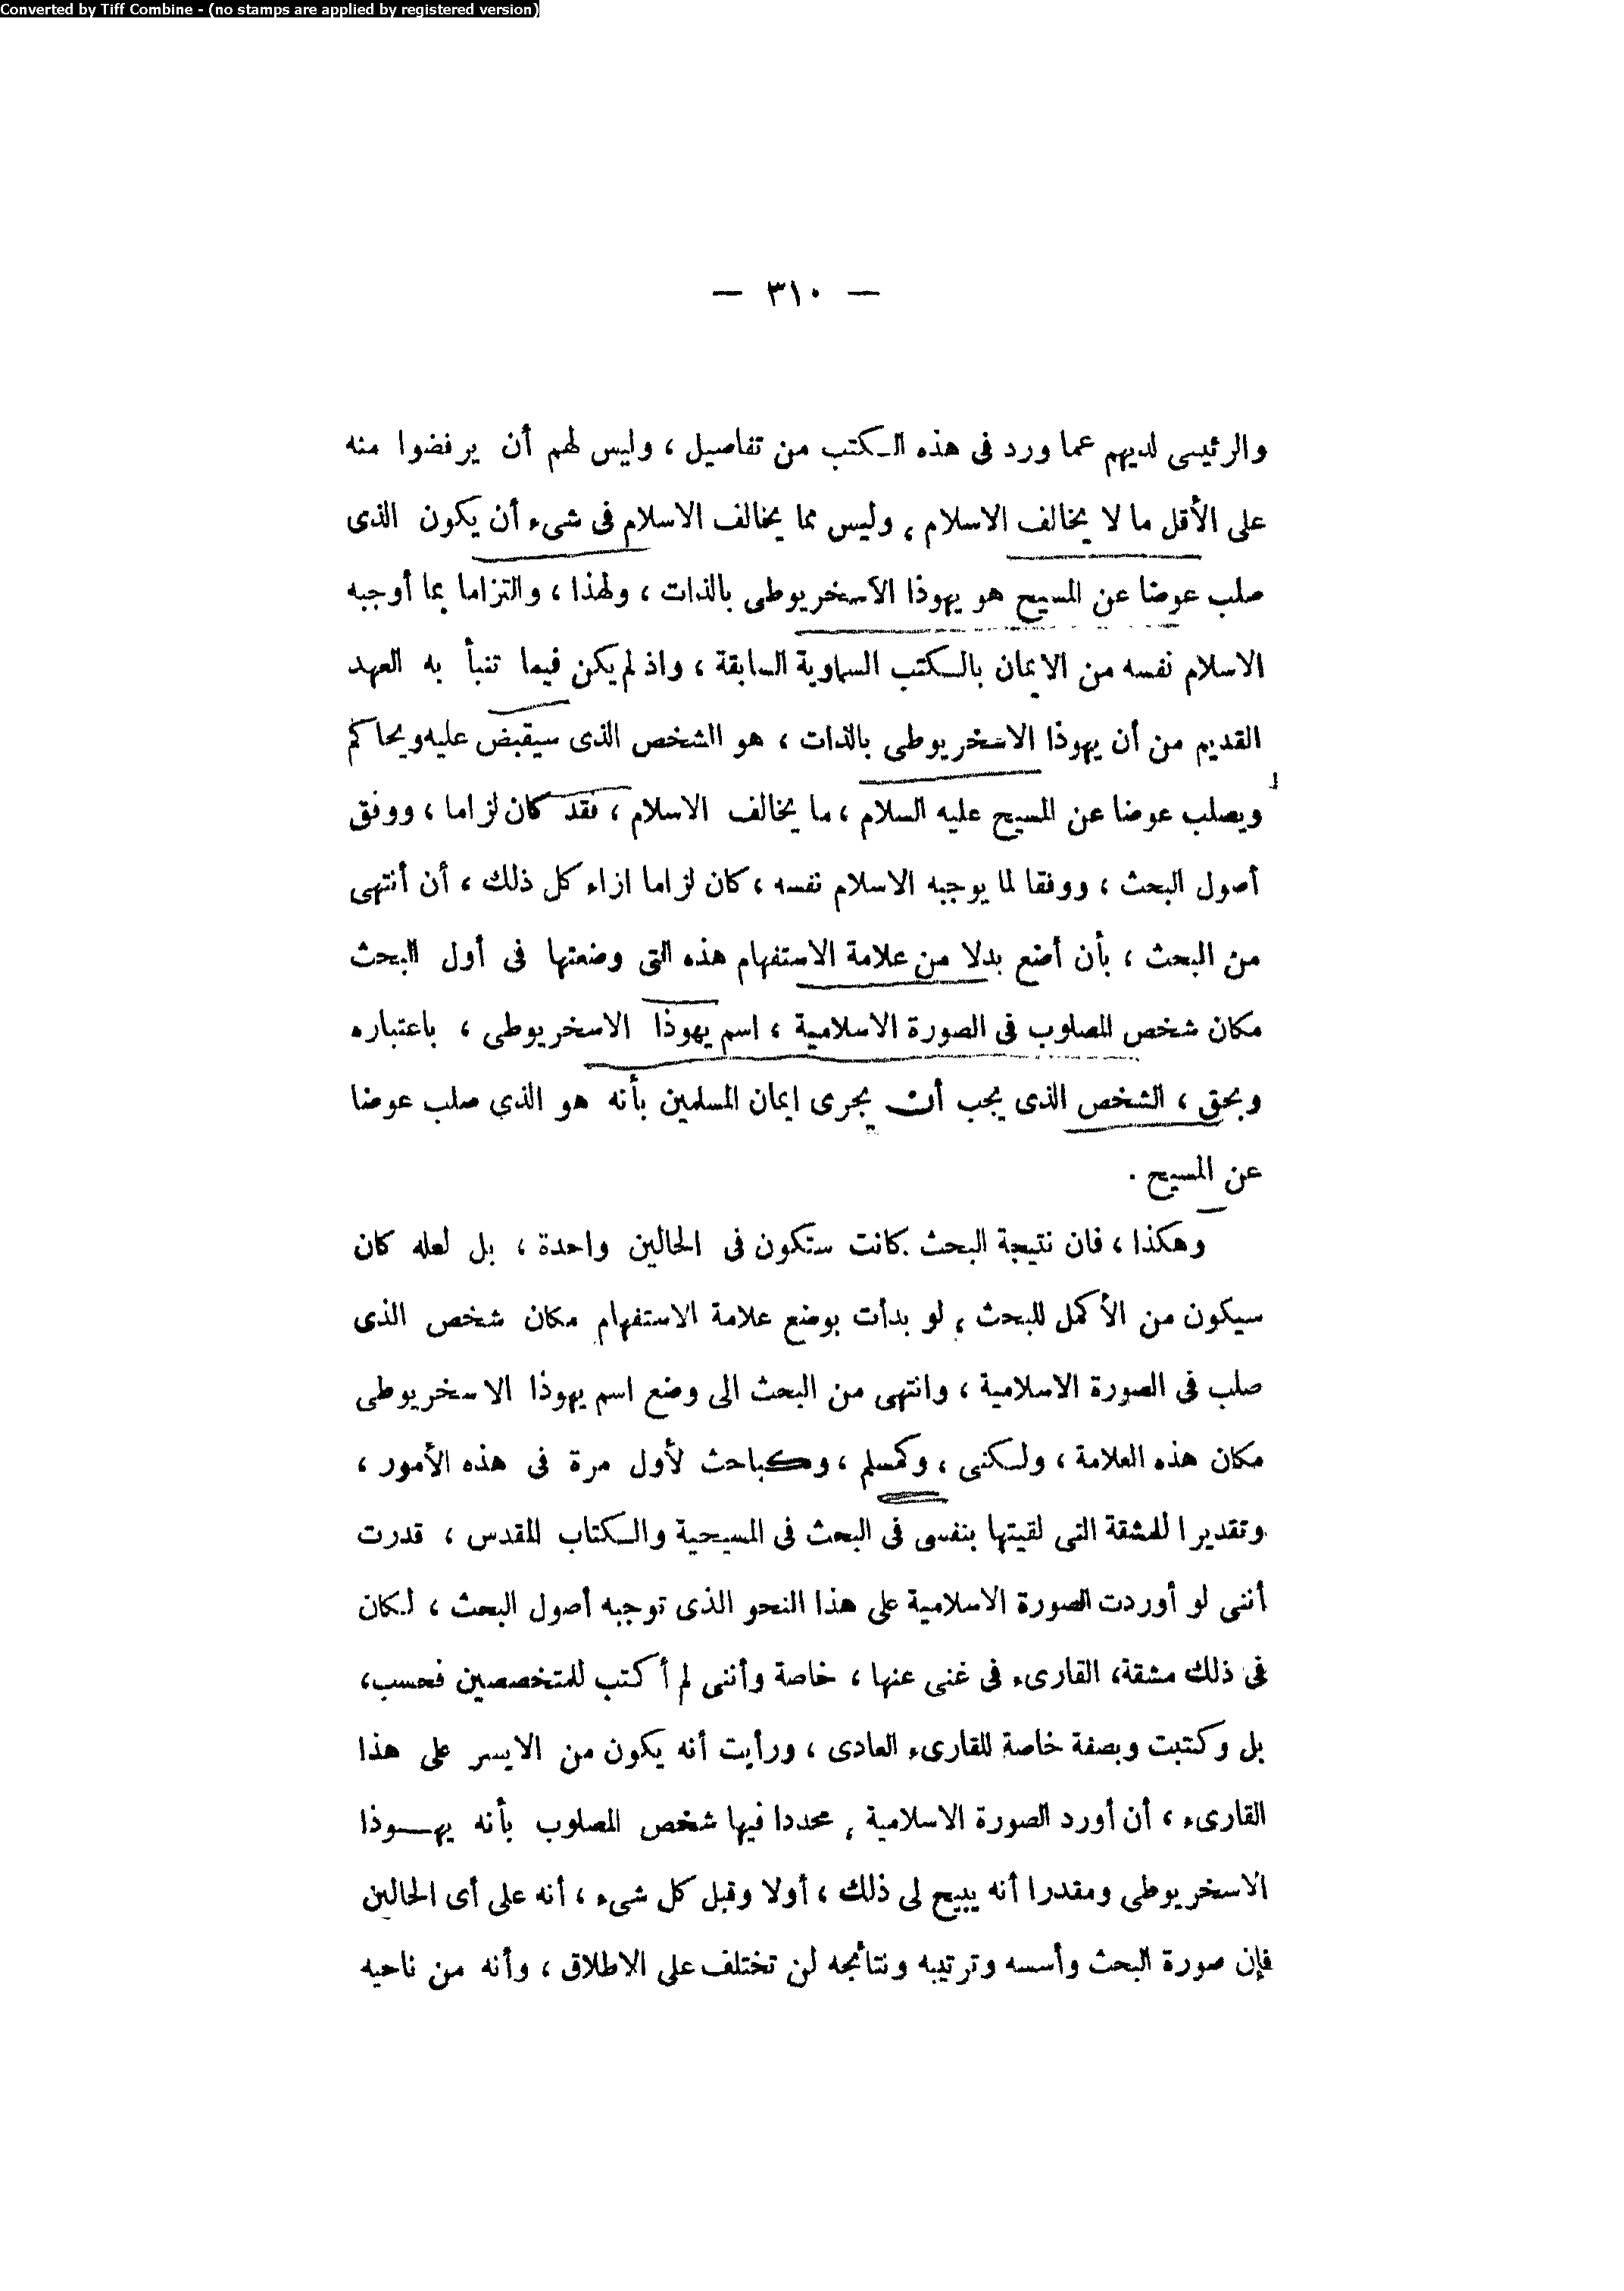 Converted by Tiff Combine - (no stamps are applied by registered version)
— ٣١٠ —
والرئيسى لديهم عما ورد فى هذه الكتب من تفاصيل ، وليس لهم أن يرفضوا منه
على الأقل ما لا يخالف الاسلام ، وليس مما يخالف الاسلام فى شىء أن يكون الذى
صلب عوضا عن المسيح هو يهوذا الاسخريوطى بالذات ، ولهذا ، والتزاما بما أوجبه
الاسلام نفسه من الايمان بالكتب السماوية السابقة ، واذ لم يكن فيما تنبأ به العهد
القديم من أن يهوذا الاسخريوطى بالذات ، هو الشخص الذى سيقبض عليه ويحاكم
ويصلب عوضا عن المسيح عليه السلام ، ما يخالف الاسلام ، فقد كان لزاما ، ووفق
أصول البحث ، ووفقا لما يوجبه الاسلام نفسه ، كان لزاما ازاء كل ذلك ، أن أنتهى
من البحث ، بأن أضع بدلا من علامة الاستفهام هذه التى وضعتها فى أول البحث
مكان شخص المصلوب فى الصورة الاسلامية ، اسم يهوذا الاسخريوطى ، باعتباره
وبحق ، الشخص الذى يجب أن يجرى ايمان المسلمين بأنه هو الذي صلب عوضا
عن المسيح .
وهكذا ، فان نتيجة البحث كانت ستكون فى الحالين واحدة ، بل لعله كان
سيكون من الأكمل للبحث ، لو بدأت بوضع علامة الاستفهام مكان شخص الذى
صلب فى الصورة الاسلامية ، وانتهى من البحث الى وضع اسم يهوذا الاسخريوطى
مكان هذه العلامة ، ولكنى ، وكمسلم ، وكباحث لأول مرة فى هذه الأمور ،
وتقديرا للمشقة التى لقيتها بنفسى فى البحث فى المسيحية والكتاب المقدس ، قدرت
أننى لو أوردت الصورة الاسلامية على هذا النحو الذى توجبه أصول البحث ، لكان
فى ذلك مشقة، القارىء فى غنى عنها ، خاصة وأننى لم أكتب للمتخصصين فحسب،
بل وكتبت وبصفة خاصة للقارىء العادى ، ورأيت أنه يكون من الايسر على هذا
القارىء ، أن أورد الصورة الاسلامية ، محددا فيها شخص المصلوب بأنه يهـوذا
الاسخريوطى ومقدرا أنه يبيح لى ذلك ، أولا وقبل كل شىء ، أنه على أى الحالين
فإن صورة البحث وأسسه وترتيبه ونتائجه لن تختلف على الاطلاق ، وأنه من ناحيه